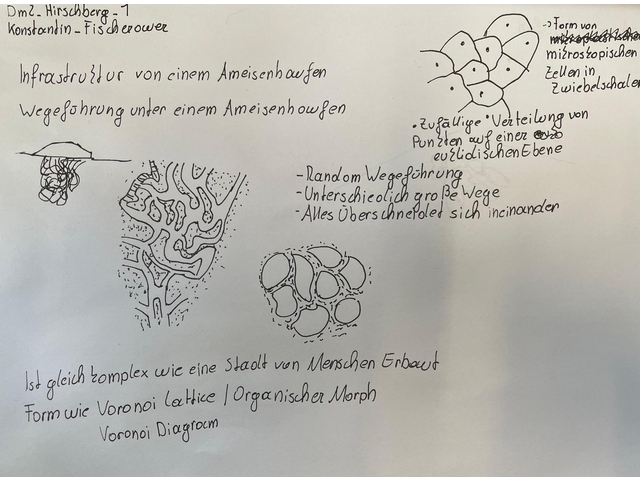 Dm2_Hirschberg_1
Konstantin_Fischerower
Infrastruktur von einem Ameisenhaufen
Wegeführung unter einem Ameisenhaufen
-> Form von
mikroskopischen
Zellen in
Zwiebelschalen
• Zufällige Verteilung von
Punkten auf einer
euklidischen Ebene
- Random Wegeführung
- Unterschiedlich große Wege
- Alles Überschneidet sich ineinander
Ist gleich komplex wie eine Stadt von Menschen Erbaut
Form wie Voronoi Lattice / Organischer Morph
Voronoi Diagram